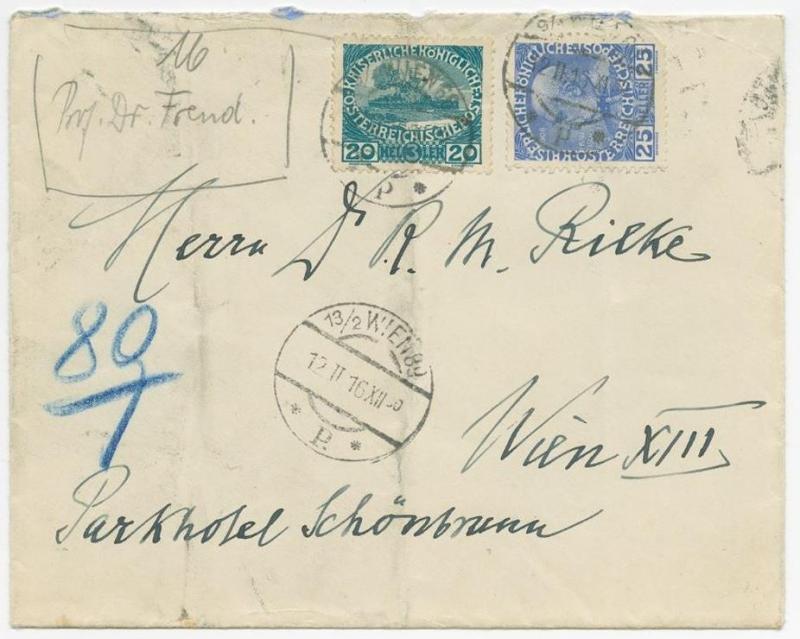 16
Prof. Dr. Freud.
KAISERLICHE KÖNIGLICHE
ÖSTERREICHISCHE POST
20 HELLER 20
3
25 HELLER 25
KAISERLICHE KÖNIGLICHE ÖSTERREICHISCHE POST
WIEN
P *
Herrn Dr R. M. Rilke
13/2 WIEN 89
12.II.16 XII 50
* P. *
89/1
Wien XIII
Parkhotel Schönbrunn